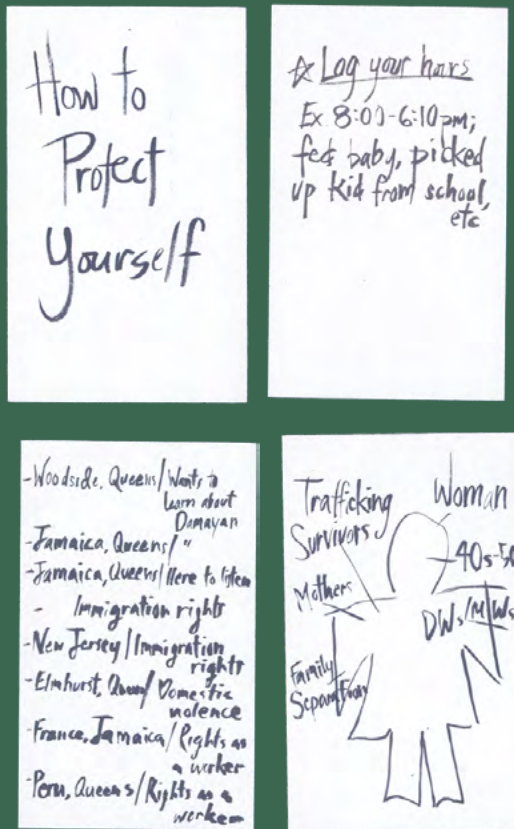 How to
Protect
Yourself
☆ Log your hours
Ex 8:00-6:10pm;
fed baby, picked
up kid from school,
etc
-Woodside, Queens/Wants to
learn about
Damayan
-Jamaica, Queens/"
-Jamaica, Queens/Here to listen
- Immigration rights
-New Jersey/Immigration
rights
-Elmhurst, Queens/Domestic
violence
-France, Jamaica/Rights as
a worker
-Peru, Queens/Rights as a
worker
Trafficking
Survivors
Woman
-40s-50
Mothers
DWs/MWs
Family
Separation